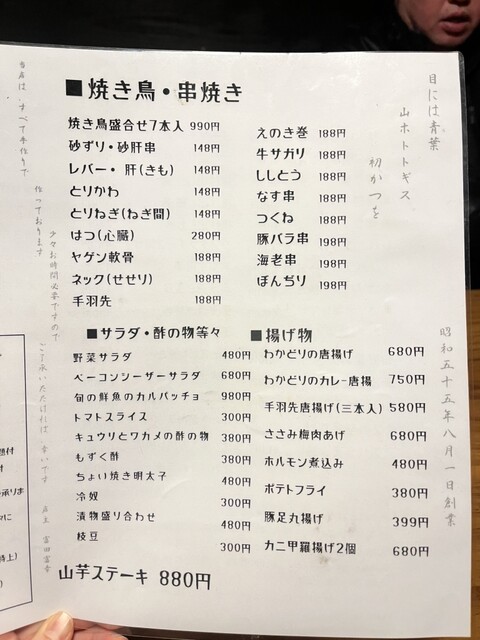 ■焼き鳥・串焼き
焼き鳥盛合せ7本入 990円
砂ずり・砂肝串 148円
レバー・肝(きも) 148円
とりかわ 148円
とりねぎ(ねぎ間) 148円
はつ(心臓) 280円
ヤゲン軟骨 188円
ネック(せせり) 188円
手羽先 188円
えのき巻 188円
牛サガリ 188円
ししとう 188円
なす串 188円
つくね 188円
豚バラ串 198円
海老串 198円
ぼんぢり 198円
■サラダ・酢の物等々
野菜サラダ 480円
ベーコンシーザーサラダ 680円
旬の鮮魚のカルパッチョ 980円
トマトスライス 300円
キュウリとワカメの酢の物 380円
もずく酢 380円
ちょい焼き明太子 480円
冷奴 300円
漬物盛り合わせ 480円
枝豆 300円
山芋ステーキ 880円
■揚げ物
わかどりの唐揚げ 680円
わかどりのカレー唐揚 750円
手羽先唐揚げ(三本入) 580円
ささみ梅肉あげ 680円
ホルモン煮込み 480円
ポテトフライ 380円
豚足丸揚げ 399円
カニ甲羅揚げ2個 680円
目には青葉
山ホトトギス
初かつを
昭和五十五年八月一日創業
当店は すべて手作りで
作っております
少々お時間必要ですので
ご了承いただければ 幸いです
店主